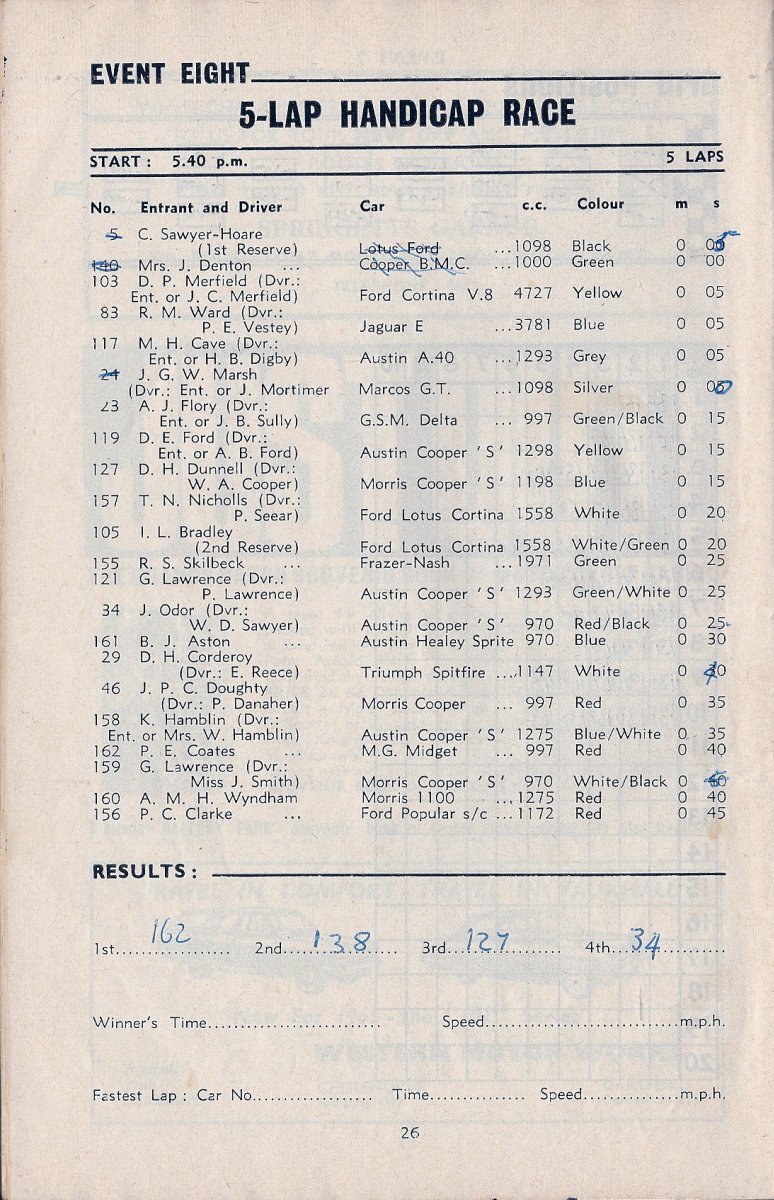 EVENT EIGHT
5-LAP HANDICAP RACE
START : 5.40 p.m. 5 LAPS
No. Entrant and Driver Car c.c. Colour m s
5 C. Sawyer-Hoare
(1st Reserve) Lotus Ford ...1098 Black 0 00 5
140 Mrs. J. Denton ... Cooper B.M.C. ...1000 Green 0 00
103 D. P. Merfield (Dvr.:
Ent. or J. C. Merfield) Ford Cortina V.8 4727 Yellow 0 05
83 R. M. Ward (Dvr.:
P. E. Vestey) Jaguar E ...3781 Blue 0 05
117 M. H. Cave (Dvr.:
Ent. or H. B. Digby) Austin A.40 ...1293 Grey 0 05
24 J. G. W. Marsh
(Dvr.: Ent. or J. Mortimer Marcos G.T. ...1098 Silver 0 05 0
23 A. J. Flory (Dvr.:
Ent. or J. B. Sully) G.S.M. Delta ... 997 Green/Black 0 15
119 D. E. Ford (Dvr.:
Ent. or A. B. Ford) Austin Cooper 'S' 1298 Yellow 0 15
127 D. H. Dunnell (Dvr.:
W. A. Cooper) Morris Cooper 'S' 1198 Blue 0 15
157 T. N. Nicholls (Dvr.:
P. Seear) Ford Lotus Cortina 1558 White 0 20
105 I. L. Bradley
(2nd Reserve) Ford Lotus Cortina 1558 White/Green 0 20
155 R. S. Skilbeck ... Frazer-Nash ...1971 Green 0 25
121 G. Lawrence (Dvr.:
P. Lawrence) Austin Cooper 'S' 1293 Green/White 0 25
34 J. Odor (Dvr.:
W. D. Sawyer) Austin Cooper 'S' 970 Red/Black 0 25
161 B. J. Aston ... Austin Healey Sprite 970 Blue 0 30
29 D. H. Corderoy
(Dvr.: E. Reece) Triumph Spitfire ...1147 White 0 0
46 J. P. C. Doughty
(Dvr.: P. Danaher) Morris Cooper ... 997 Red 0 35
158 K. Hamblin (Dvr.:
Ent. or Mrs. W. Hamblin) Austin Cooper 'S' 1275 Blue/White 0 35
162 P. E. Coates ... M.G. Midget ... 997 Red 0 40
159 G. Lawrence (Dvr.:
Miss J. Smith) Morris Cooper 'S' 970 White/Black 0
160 A. M. H. Wyndham Morris 1100 ...1275 Red 0 40
156 P. C. Clarke ... Ford Popular s/c ...1172 Red 0 45
RESULTS :
1st 162 2nd 138 3rd 127 4th 34
Winner's Time Speed m.p.h.
Fastest Lap : Car No. Time Speed m.p.h.
26